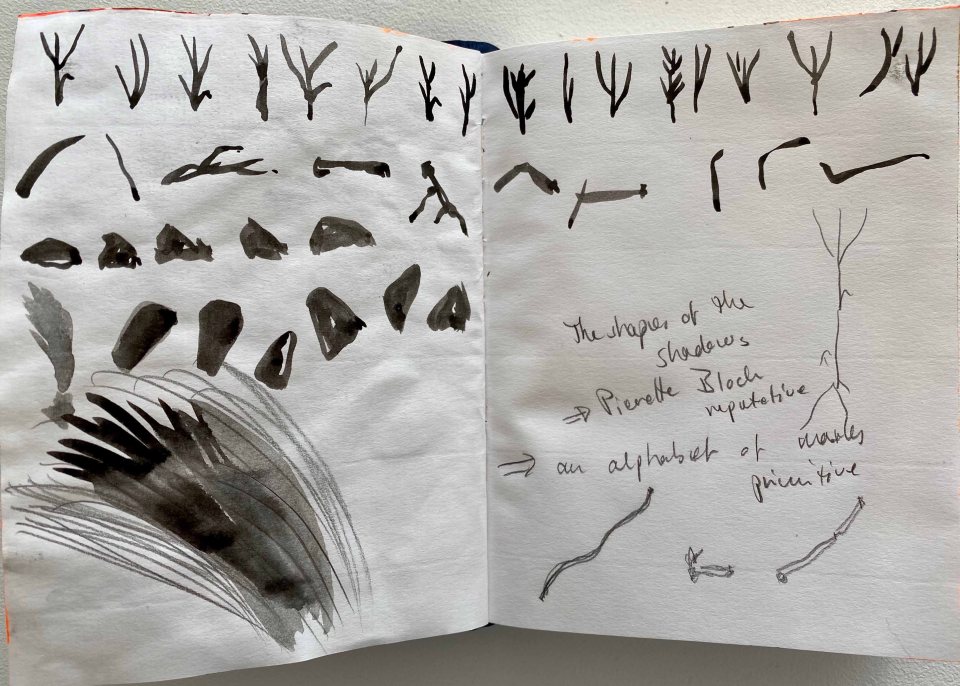 The shapes of the
shadows
⇒ Pierrette Bloch
repetative
⇒ an alphabet of marks
primitive